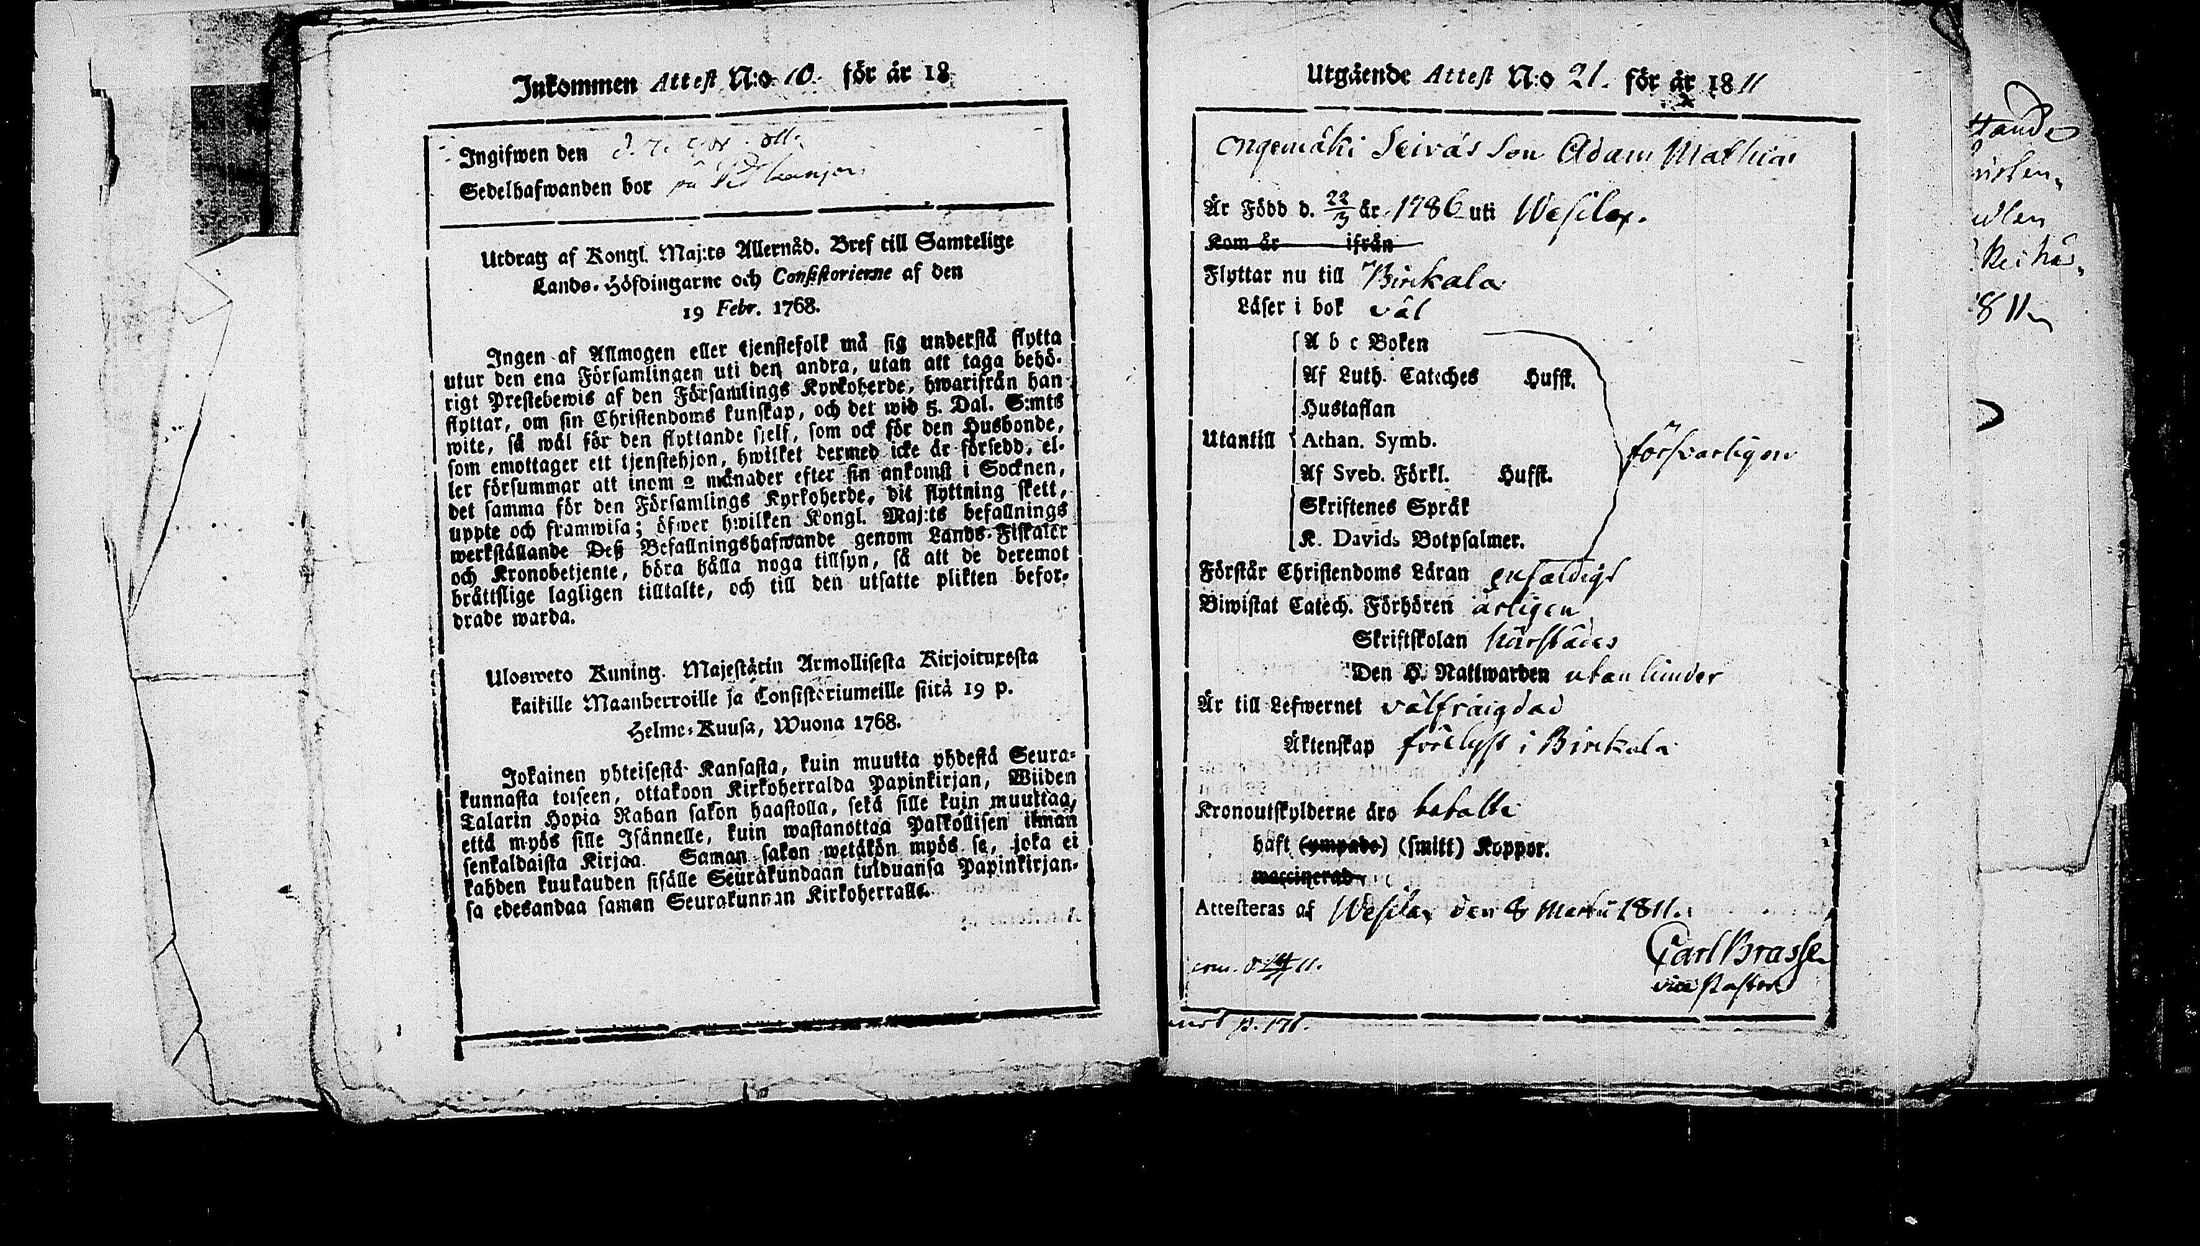 Inkommen Attest N:o 10. för år 18
Ingifwen den
Sedelhafwanden bor på
Utdrag af Kongl. Maj:ts Allernåd. Bref till Samtelige
Lands-Höfdingarne och Consistorierne af den
19 Febr. 1768.
Ingen af Allmogen eller tjenstefolk må sig understå flytta
utur den ena Församlingen uti den andra, utan att taga behö-
rigt Prestebewis af den Församlings Kyrkoherde, hwarifrån han
flyttar, om sin Christendoms kunskap, och det wid 5. Dal. S:mts
wite, så wäl för den flyttande sjelf, som ock för den Husbonde,
som emottager ett tjenstehjon, hwilket dermed icke är försedd, el-
ler försummar att inom 2 månader efter sin ankomst i Socknen,
det samma för den Församlings Kyrkoherde, dit flyttning skett,
uppte och framwisa; öfwer hwilken Kongl. Maj:ts befallnings
werkställande Deß Befallningshafwande genom Lands-Fiskaler
och Kronobetjente, böra hålla noga tillsyn, så att de deremot
brättslige lagligen tilltalte, och till den utsatte plikten befor-
drade warda.
Ulosweto Kuning. Majestätin Armollisesta Kirjoituxesta
kaikille Maanherroille ja Consistoriumeille siitä 19 p.
Helme-Kuusa, Wuona 1768.
Jokainen yhteisestä Kansasta, kuin muutta yhdestä Seura-
kunnasta toiseen, ottakoon Kirkoherralda Papinkirjan, Wiiden
Talarin Hopia Rahan sakon haastolla, sekä sille kuin muuttaa,
että myös sille Isännelle, kuin wastanottaa Palkollisen ilman
senkaldaista Kirjaa. Saman sakon wetäkön myös se, joka ei
kahden kuukauden sisälle Seurakundaan tulduansa Papinkirjan-
sa edesandaa saman Seurakunnan Kirkoherralle.
Utgående Attest N:o 21. för år 1811
Son Adam Mathias
Är Född d. 22/3 år 1786 uti Wesilax.
Kom år ifrån
Flyttar nu till Birkala
Läser i bok väl
A b c Boken
Af Luth. Cateches Hufst.
Hustaflan
Utantill Athan. Symb. försvarligen
Af Sveb. Förkl. Hufst.
Skriftenes Språk
K. Davids Botpsalmer.
Förstår Christendoms Läran enfaldigt
Biwistat Catech. Förhören årligen
Skriftskolan härstädes
Den H. Nattwarden utan hinder
Är till Lefwernet välfräigdad
Äktenskap förelyst i Birkala
Kronoutskylderne äro betalte
haft (ympade) (smitt) Koppor.
waccinerad
Attesteras af Wesilax den 8 Martii 1811.
Carl Brasse
vice Pastor
p. 171.
1811